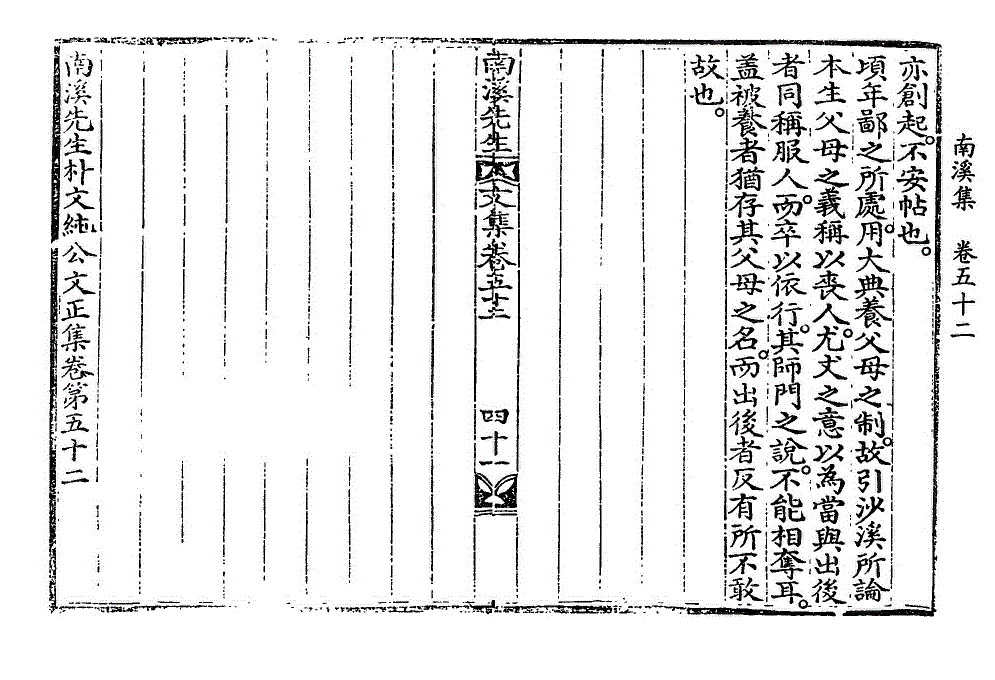 南溪集　卷五十二
亦創起。不安帖也。
頃年鄙之所處。用大典養父母之制。故引沙溪所論
本生父母之義稱以喪人。尤丈之意以為當與出後
者同稱服人。而卒以依行。其師門之說。不能相奪耳。
盖被養者猶存其父母之名。而出後者反有所不敢
故也。
南溪先生文集卷五十二
四十一
南溪先生朴文純公文正集卷第五十二